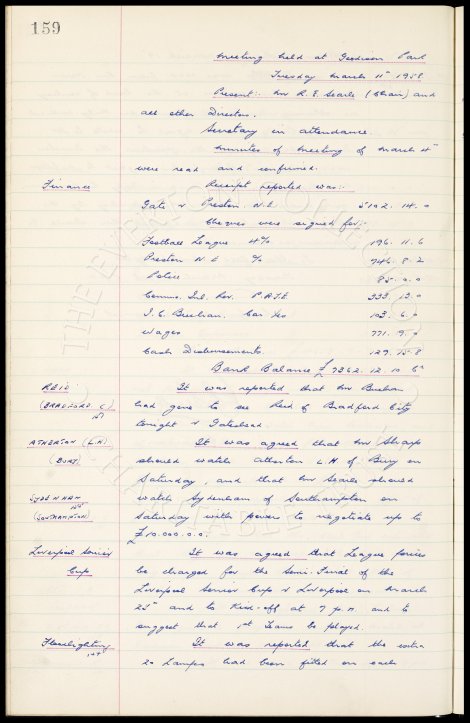 159
Meeting held at Goodison Park
Tuesday March 11th 1958
Present:- Mr R. E. Searle (Chair) and
all other Directors.
Secretary in attendance.
Minutes of Meeting of March 4th
were read and confirmed.
Finance Receipt reported was:-
Gate v Preston. N.E. 5102. 14. 0
Cheques were signed for:-
Football League 4% 196. 11. 6
Preston N.E. % 746. 8. 2
Police 85. 0. 0
Comms. Inl. Rev. P.A.Y.E. 333. 13. 0
I. C. Buchan. Car 103. 6. 0
Wages 771. 9. 0
Cash Disbursements. 129. 15. 8
Bank Balance £7362. 12. 10 Cr
REID It was reported that Mr Buchan
(BRADFORD. C.) had gone to see Reid of Bradford City
157
tonight v Gateshead.
ATHERTON (L.H.) It was agreed that Mr Sharp
(BURY) should watch Atherton L.H. of Bury on
Saturday, and that Mr Searle should
SYDENHAM watch Sydenham of Southampton on
(SOUTHAMPTON) Saturday with powers to negotiate up to
£10,000.0.0.
Liverpool Senior It was agreed that League prices
Cup be charged for the Semi-Final of the
Liverpool Senior Cup v Liverpool on March
and to Kick-off at 7 p.m. and to
suggest that 1st Teams be played.
Floodlighting It was reported that the extra
20 Lamps had been fitted on each
THE EVERTON COLLECTION
CHARITABLE